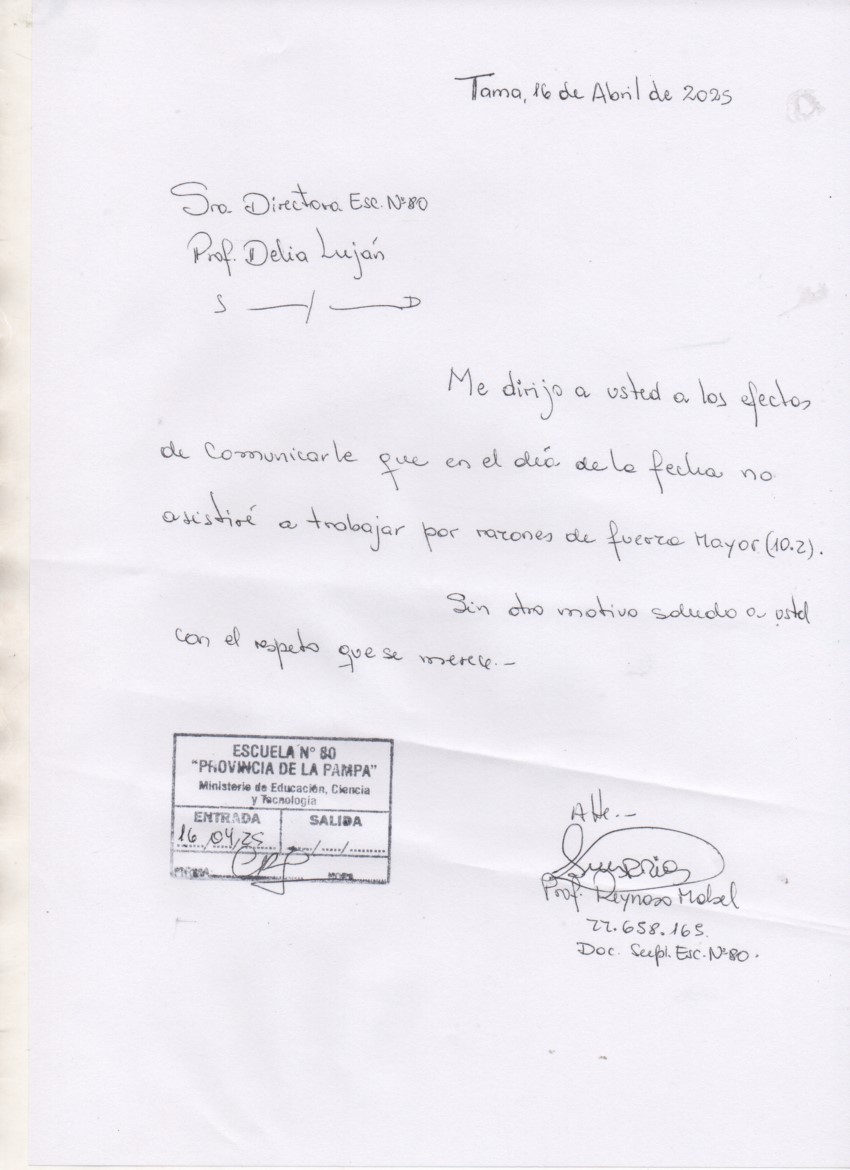 Tama, 16 de Abril de 2025
Sra. Directora Esc. Nº80
Prof. Delia Luján
S / D
Me dirijo a usted a los efectos
de comunicarle que en el día de la fecha no
asistiré a trabajar por razones de fuerza Mayor (10.2).
Sin otro motivo saludo a usted
con el respeto que se merece.-
ESCUELA Nº 80
"PROVINCIA DE LA PAMPA"
Ministerio de Educación, Ciencia
y Tecnología
ENTRADA SALIDA
16/04/25 .../.../...
FIRMA HORA
Atte.-
Prof. Reynoso Mabel
22.658.165.
Doc. Supl. Esc. Nº80.